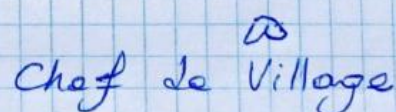 Chef de Village